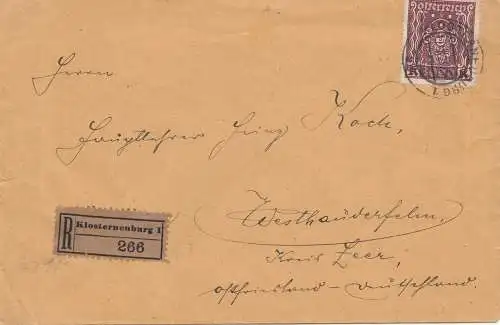 Österreich
Herrn
Hauptlehrer Heinz Koch,
R Klosterneuburg 1
266
Westrhauderfehn,
Kreis Leer,
Ostfriesland - Deutschland.